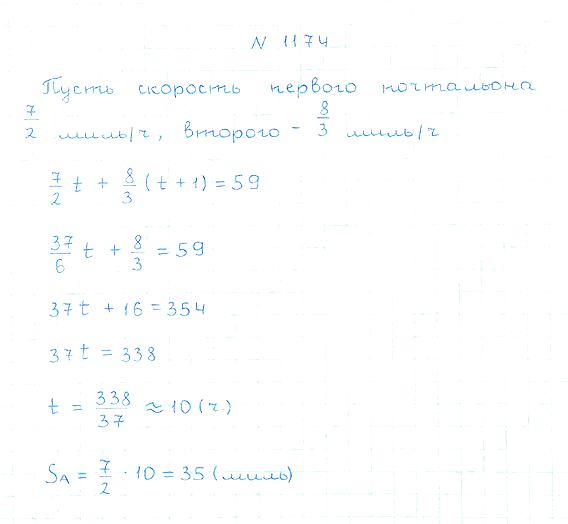 N 1174
Пусть скорость первого почтальона
7/2 миль/ч, второго - 8/3 миль/ч
7/2 t + 8/3 (t + 1) = 59
37/6 t + 8/3 = 59
37t + 16 = 354
37t = 338
t = 338/37 ≈ 10 (ч.)
SA = 7/2 · 10 = 35 (миль)